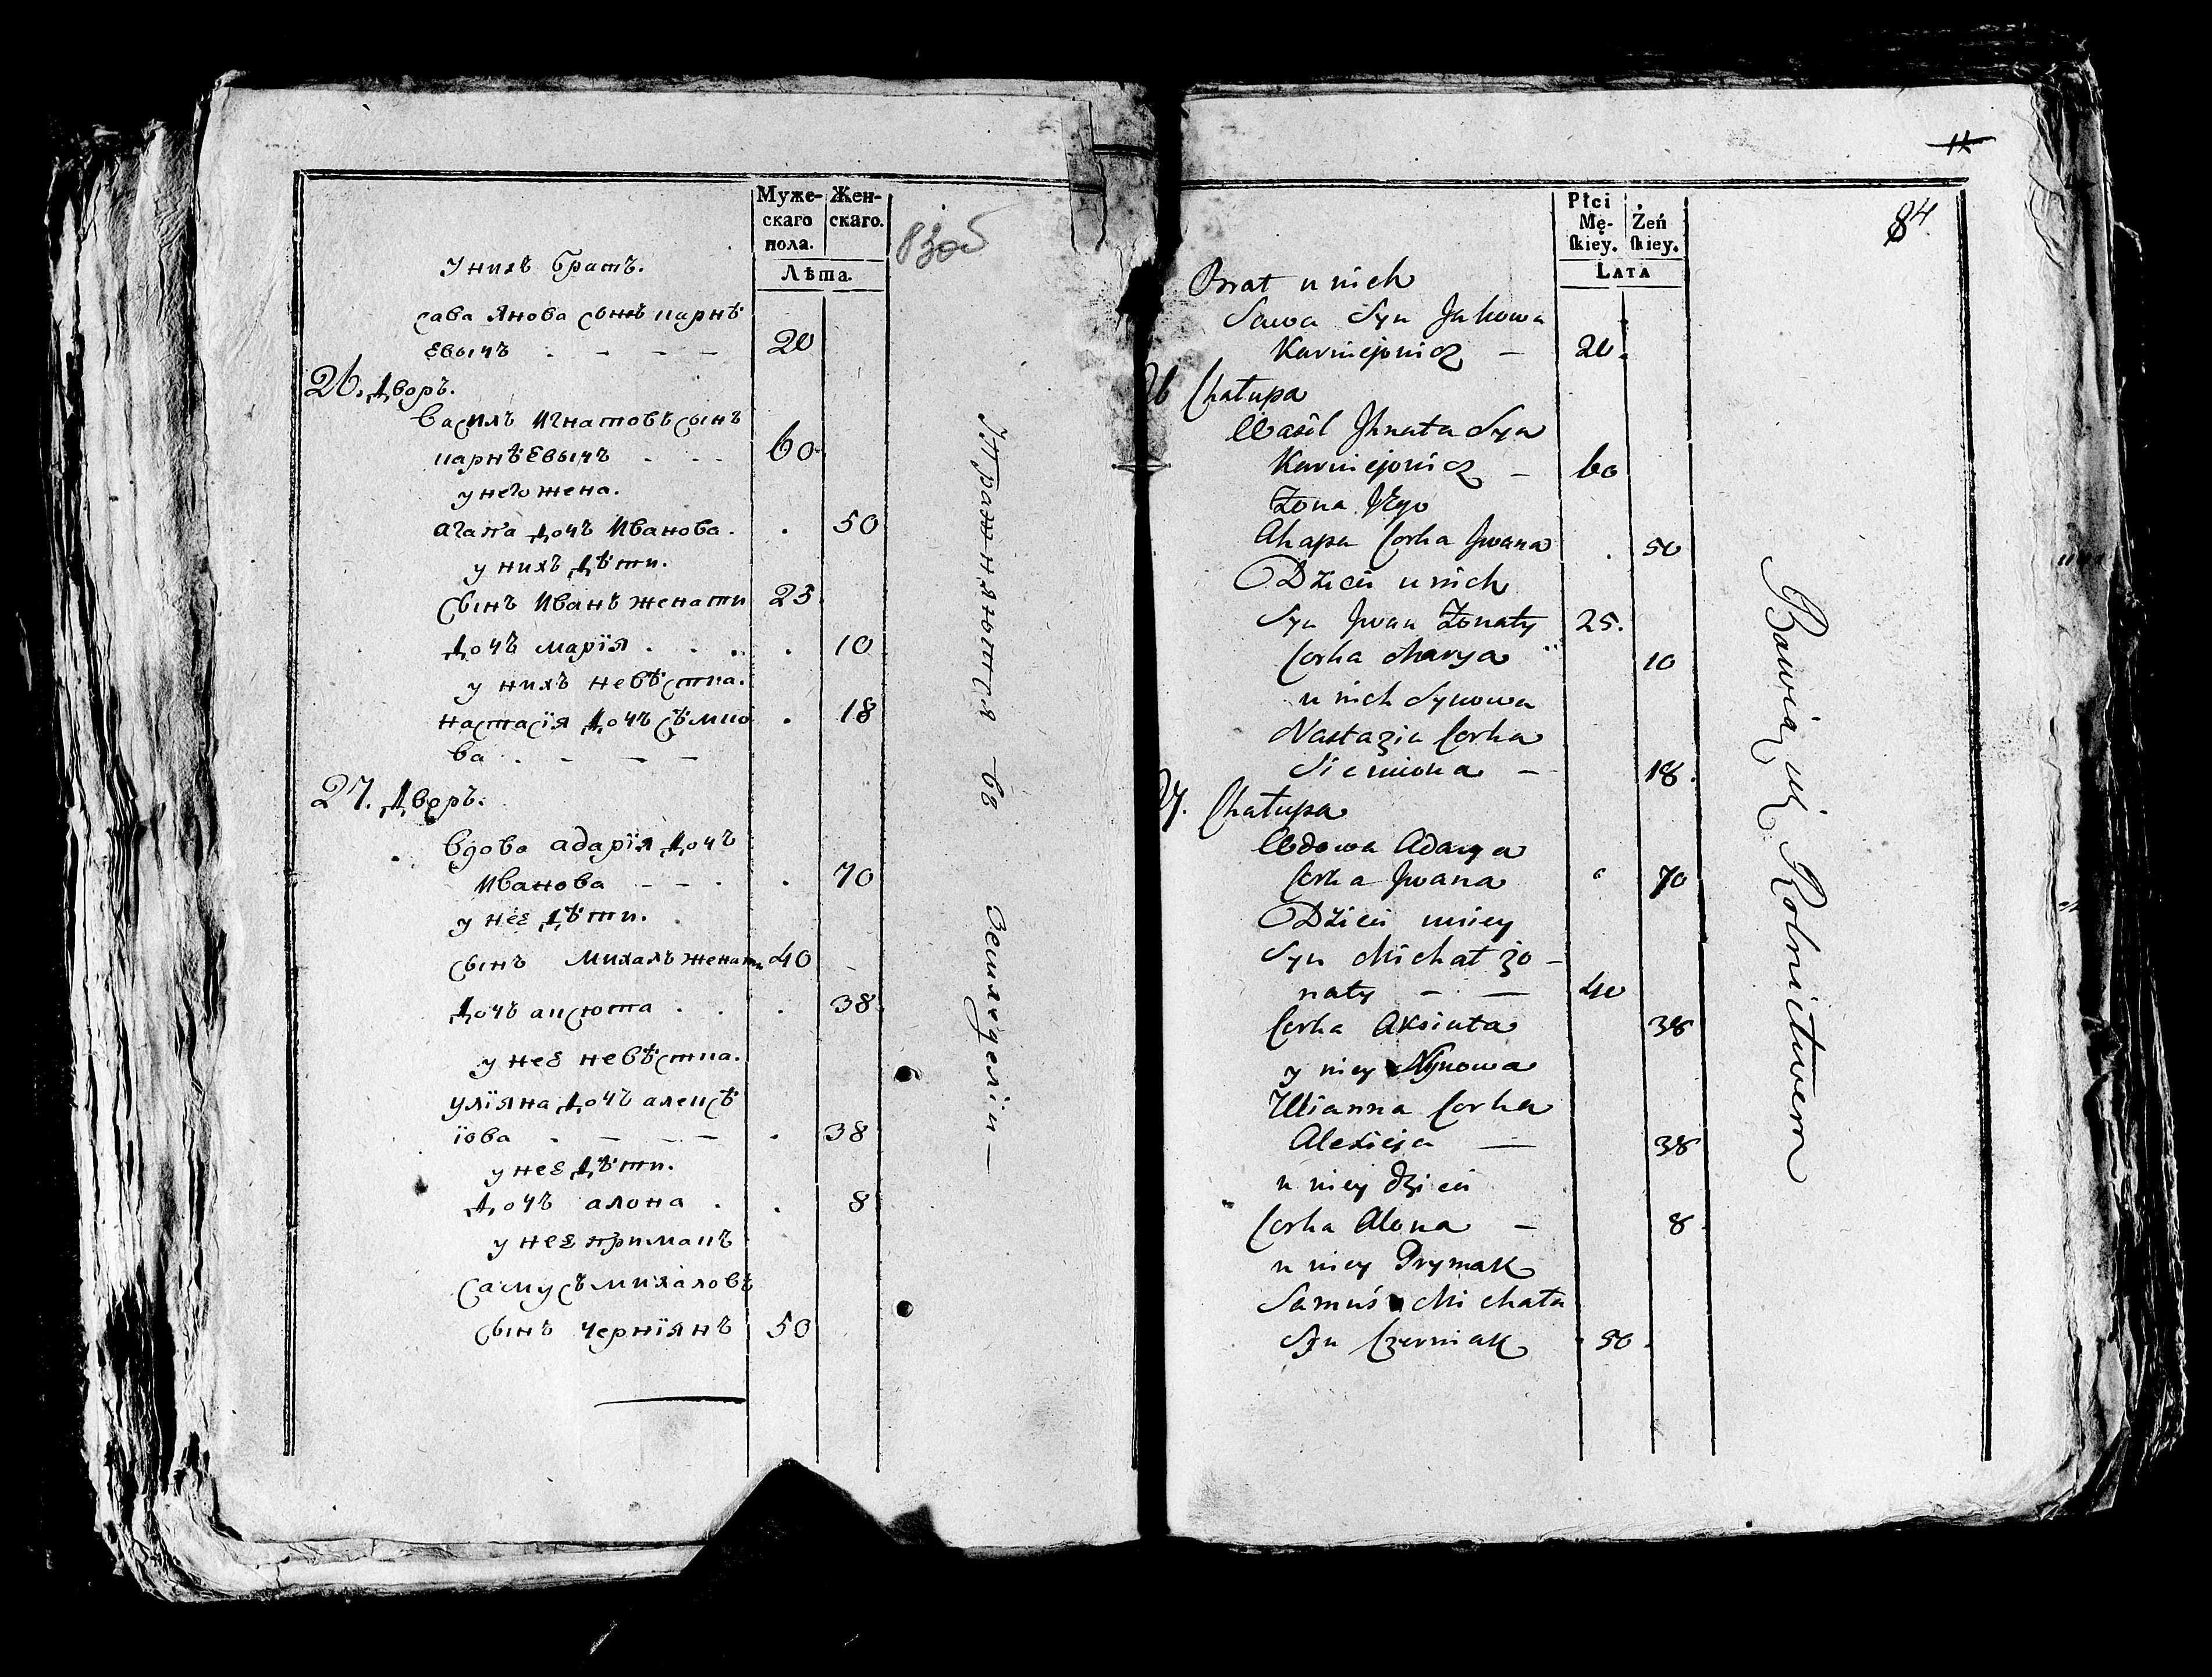 Муже-
скаго
пола.
Жен-
скаго.
Лѣта.
83об
У нихъ братъ.
сава Янова сынъ карнѣ
евичъ 20
26. Дворъ.
василъ Игнатовъ сынъ
карнѣевичъ 60
у него жена.
агапа дочъ Иванова. 50
у нихъ дѣти.
сынъ Иванъ женати 25
дочъ марія 10
у нихъ невѣстка.
настасія дочъ сѣмио 18
ва
27. Дворъ.
вдова адарія дочъ
Иванова 70
у нее дѣти.
сынъ михалъ женати 40
дочъ аксюта 38
у нее невѣстка.
уліяна дочъ алексѣ
іова 38
у нее дѣти.
дочъ алона 8
у нее примакъ
самусъ михаловъ
сынъ чернiякъ 50
Упражняются въ земледеліи —
11
84
Płci
Mę-
skiey.
Żeń
skiey.
LATA
Brat u nich
Sawa Syn Jakowa
Karniejewicz — 20.
26 Chałupa
Wasil Ihnata Syn
Karniejewicz — 60
Żona Jego
Ahapa Corka Jwana 50
Dzieci u nich
Syn Jwan Żonaty 25.
Corka Marya 10
u nich Synowa
Nastazia Corka
Siemiona — 18.
27. Chałupa
Wdowa Adarya
Corka Jwana 70
Dzieci u niey
Syn Michał żo-
naty — — 40
Corka Aksiuta 38
y niey Synowa
Ulianna Corka
Alexieja — 38
u niey dzieci
Corka Alona — 8.
u niey Prymak
Samuś Michała
Syn Czerniak 50.
Bawią się Rolnictwem